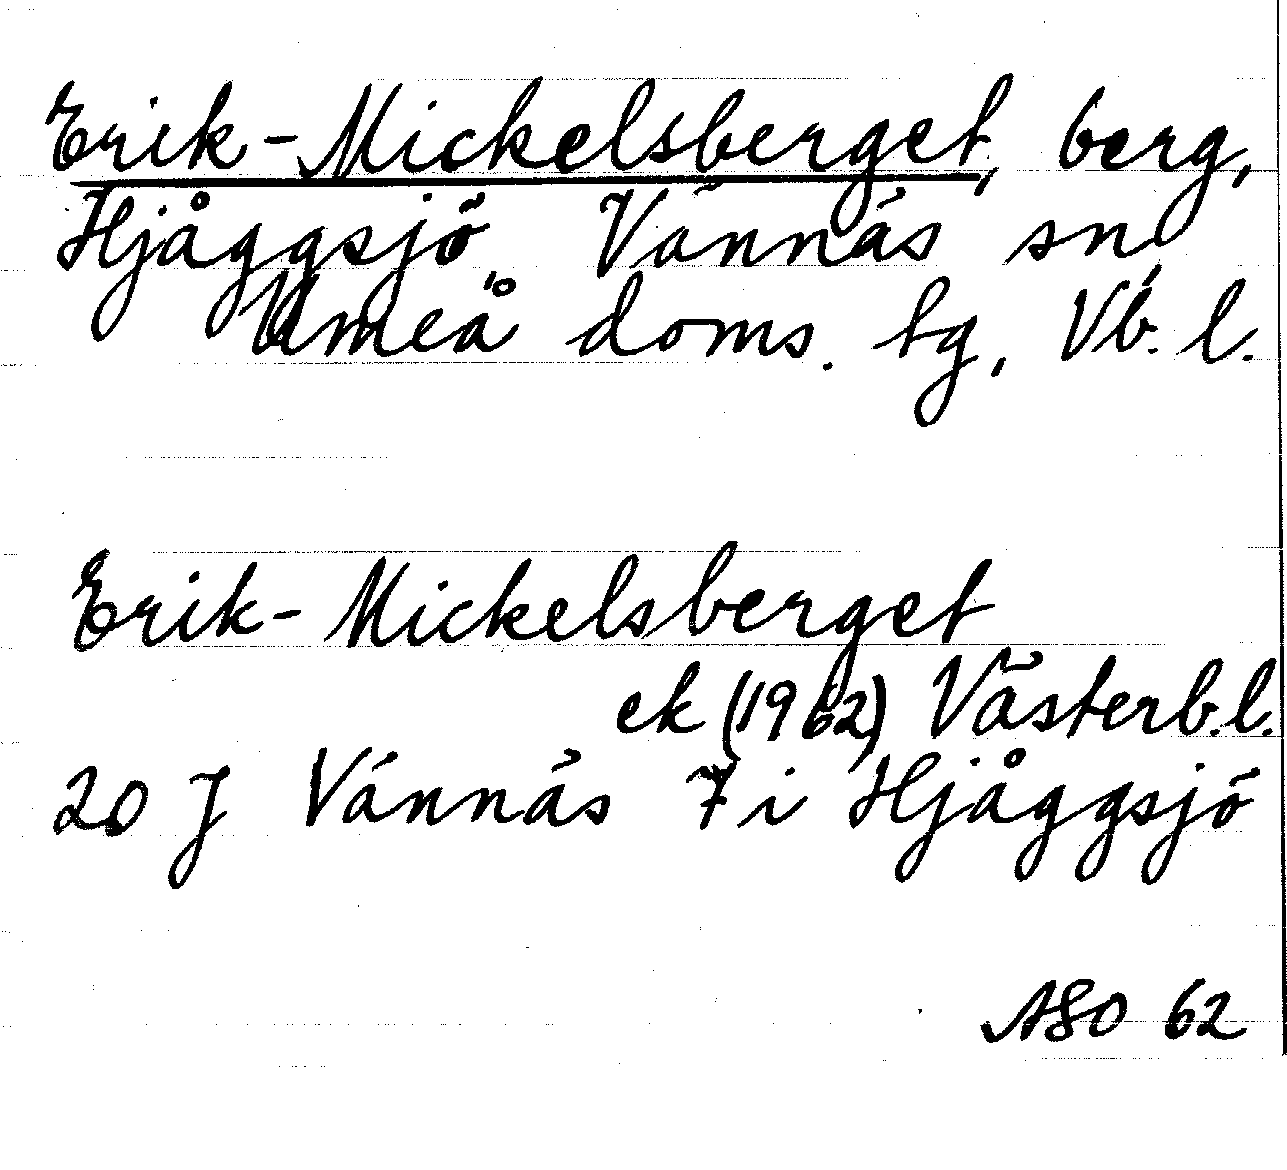 Erik-Mickelsberget, berg,
Hjåggsjö, Vännäs sn,
Umeå doms. tg, Vb. l.
Erik-Mickelsberget
ek (1962) Västerb.l.
20 J Vännäs 7 i Hjåggsjö
ASO 62